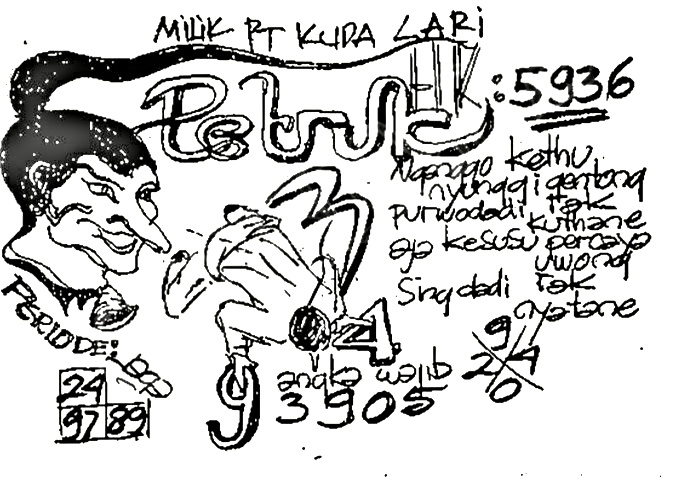 MILIK PT KUDA LARI
Petruk : 5936
Nganggo kethu
nyunggi gentong
Purwodadi tak
kuthane
ojo kesusu percaya
uwong
Sing dadi tak
nyatane
PERIODE:
3
04
9
angka wajib
3905
9
2 4
0
24
97 89